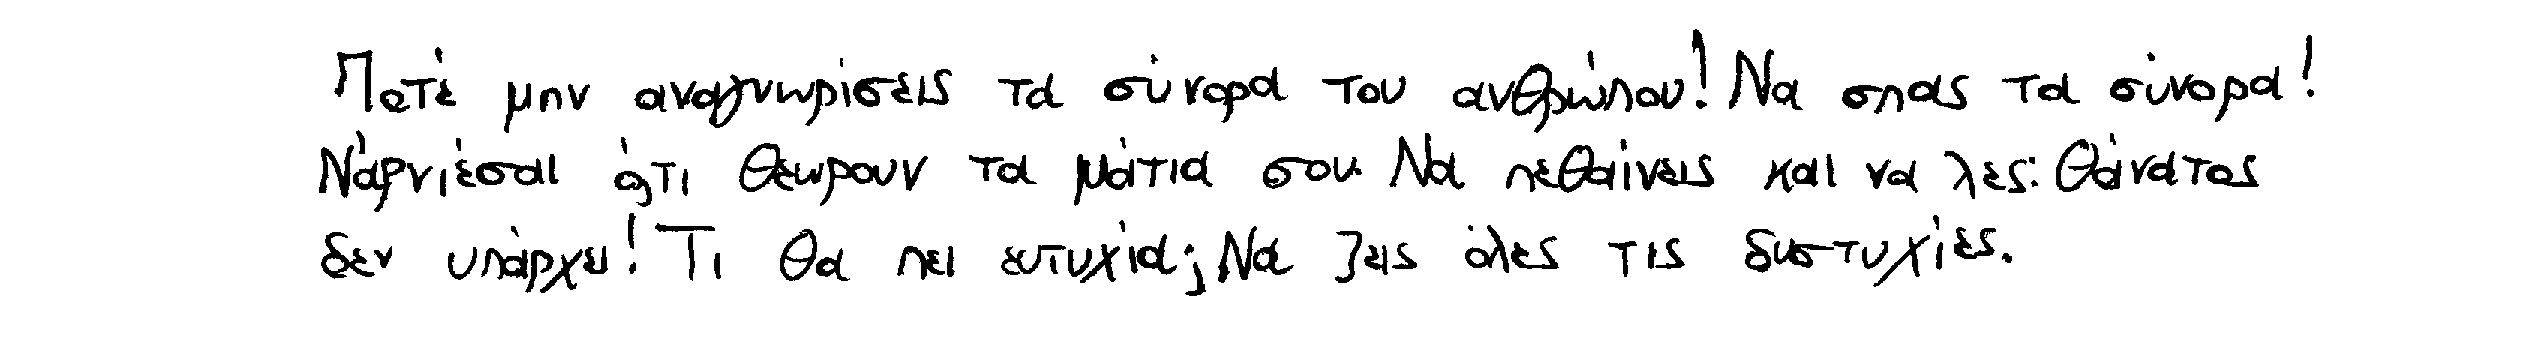 Ποτέ μην αναγνωρίσεις τα σύνορα του ανθρώπου! Να σπας τα σύνορα!
Ν'αρνιέσαι ότι θεωρουν τα μάτια σου. Να πεθαίνεις και να λες: Θάνατος
δεν υπάρχει! Τι θα πει ευτυχία; Να ζεις όλες τις δυστυχίες.